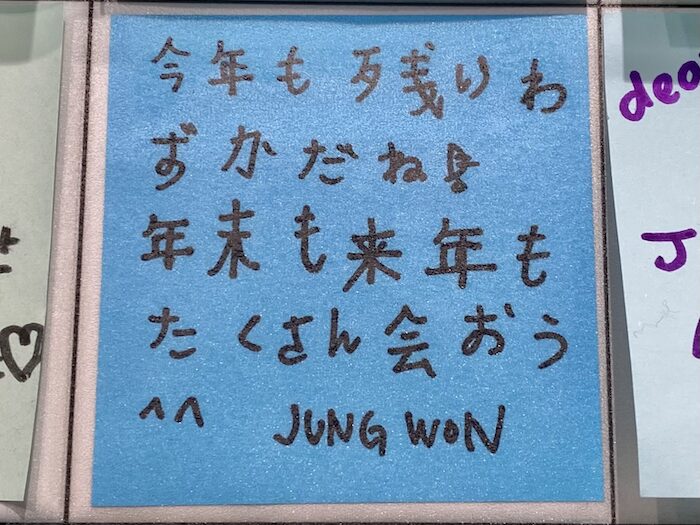 今年も残りわ
ずかだね
年末も来年も
たくさん会おう
^^ JUNG WON
dea
J